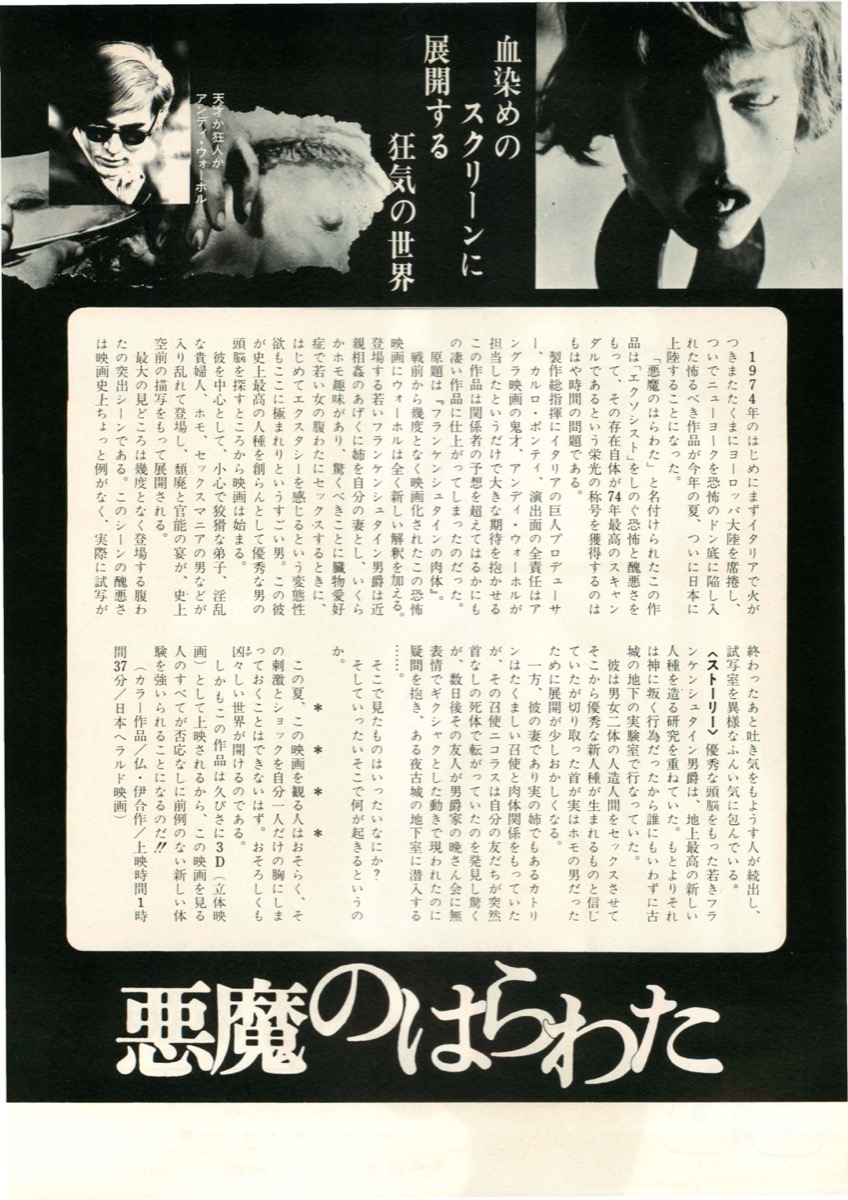 血染めの
スクリーンに
展開する
狂気の世界
天才か狂人か
アンディ・ウォーホル
1974年のはじめにまずイタリアで火が
つきまたたくまにヨーロッパ大陸を席捲し、
ついでニューヨークを恐怖のドン底に陥し入
れた怖るべき作品が今年の夏、ついに日本に
上陸することになった。
「悪魔のはらわた」と名付けられたこの作
品は「エクソシスト」をしのぐ恐怖と醜悪さを
もって、その存在自体が74年最高のスキャン
ダルであるという栄光の称号を獲得するのは
もはや時間の問題である。
製作総指揮にイタリアの巨人プロデューサ
ー、カルロ・ポンティ、演出面の全責任はア
ングラ映画の鬼才、アンディ・ウォーホルが
担当したというだけで大きな期待を抱かせる
この作品は関係者の予想を超えてはるかにも
の凄い作品に仕上がってしまったのだった。
原題は『フランケンシュタインの肉体』。
戦前から幾度となく映画化されたこの恐怖
映画にウォーホルは全く新しい解釈を加える。
登場する若いフランケンシュタイン男爵は近
親相姦のあげくに姉を自分の妻とし、いくら
かホモ趣味があり、驚くべきことに臓物愛好
症で若い女の腹わたにセックスするときに、
はじめてエクスタシーを感じるという変態性
欲もここに極まれりというすごい男。この彼
が史上最高の人種を創らんとして優秀な男の
頭脳を探すところから映画は始まる。
彼を中心として、小心で狡猾な弟子、淫乱
な貴婦人、ホモ、セックスマニアの男などが
入り乱れて登場し、頽廃と官能の宴が、史上
空前の描写をもって展開される。
最大の見どころは幾度となく登場する腹わ
たの突出シーンである。このシーンの醜悪さ
は映画史上ちょっと例がなく、実際に試写が
終わったあと吐き気をもようす人が続出し、
試写室を異様なふんい気に包んでいる。
〈ストーリー〉優秀な頭脳をもった若きフラ
ンケンシュタイン男爵は、地上最高の新しい
人種を造る研究を重ねていた。もとよりそれ
は神に叛く行為だったから誰にもいわずに古
城の地下の実験室で行なっていた。
彼は男女二体の人造人間をセックスさせて
そこから優秀な新人種が生まれるものと信じ
ていたが切り取った首が実はホモの男だった
ために展開が少しおかしくなる。
一方、彼の妻であり実の姉でもあるカトリ
ンはたくましい召使と肉体関係をもっていた
が、その召使ニコラスは自分の友だちが突然
首なしの死体で転がっていたのを発見し驚く
が、数日後その友人が男爵家の晩さん会に無
表情でギクシャクとした動きで現われたのに
疑問を抱き、ある夜古城の地下室に潜入する
……。
そこで見たものはいったいなにか?
そしていったいそこで何が起きるというの
か。
* * * *
この夏、この映画を観る人はおそらく、そ
の刺激とショックを自分一人だけの胸にしま
っておくことはできないはず。おそろしくも
凶々しい世界が開けるのである。
まが
しかもこの作品は久びさに3D(立体映
画)として上映されるから、この映画を見る
人のすべてが否応なしに前例のない新しい体
験を強いられることになるのだ!!
(カラー作品/仏・伊合作/上映時間1時
間37分/日本ヘラルド映画)
悪魔のはらわた